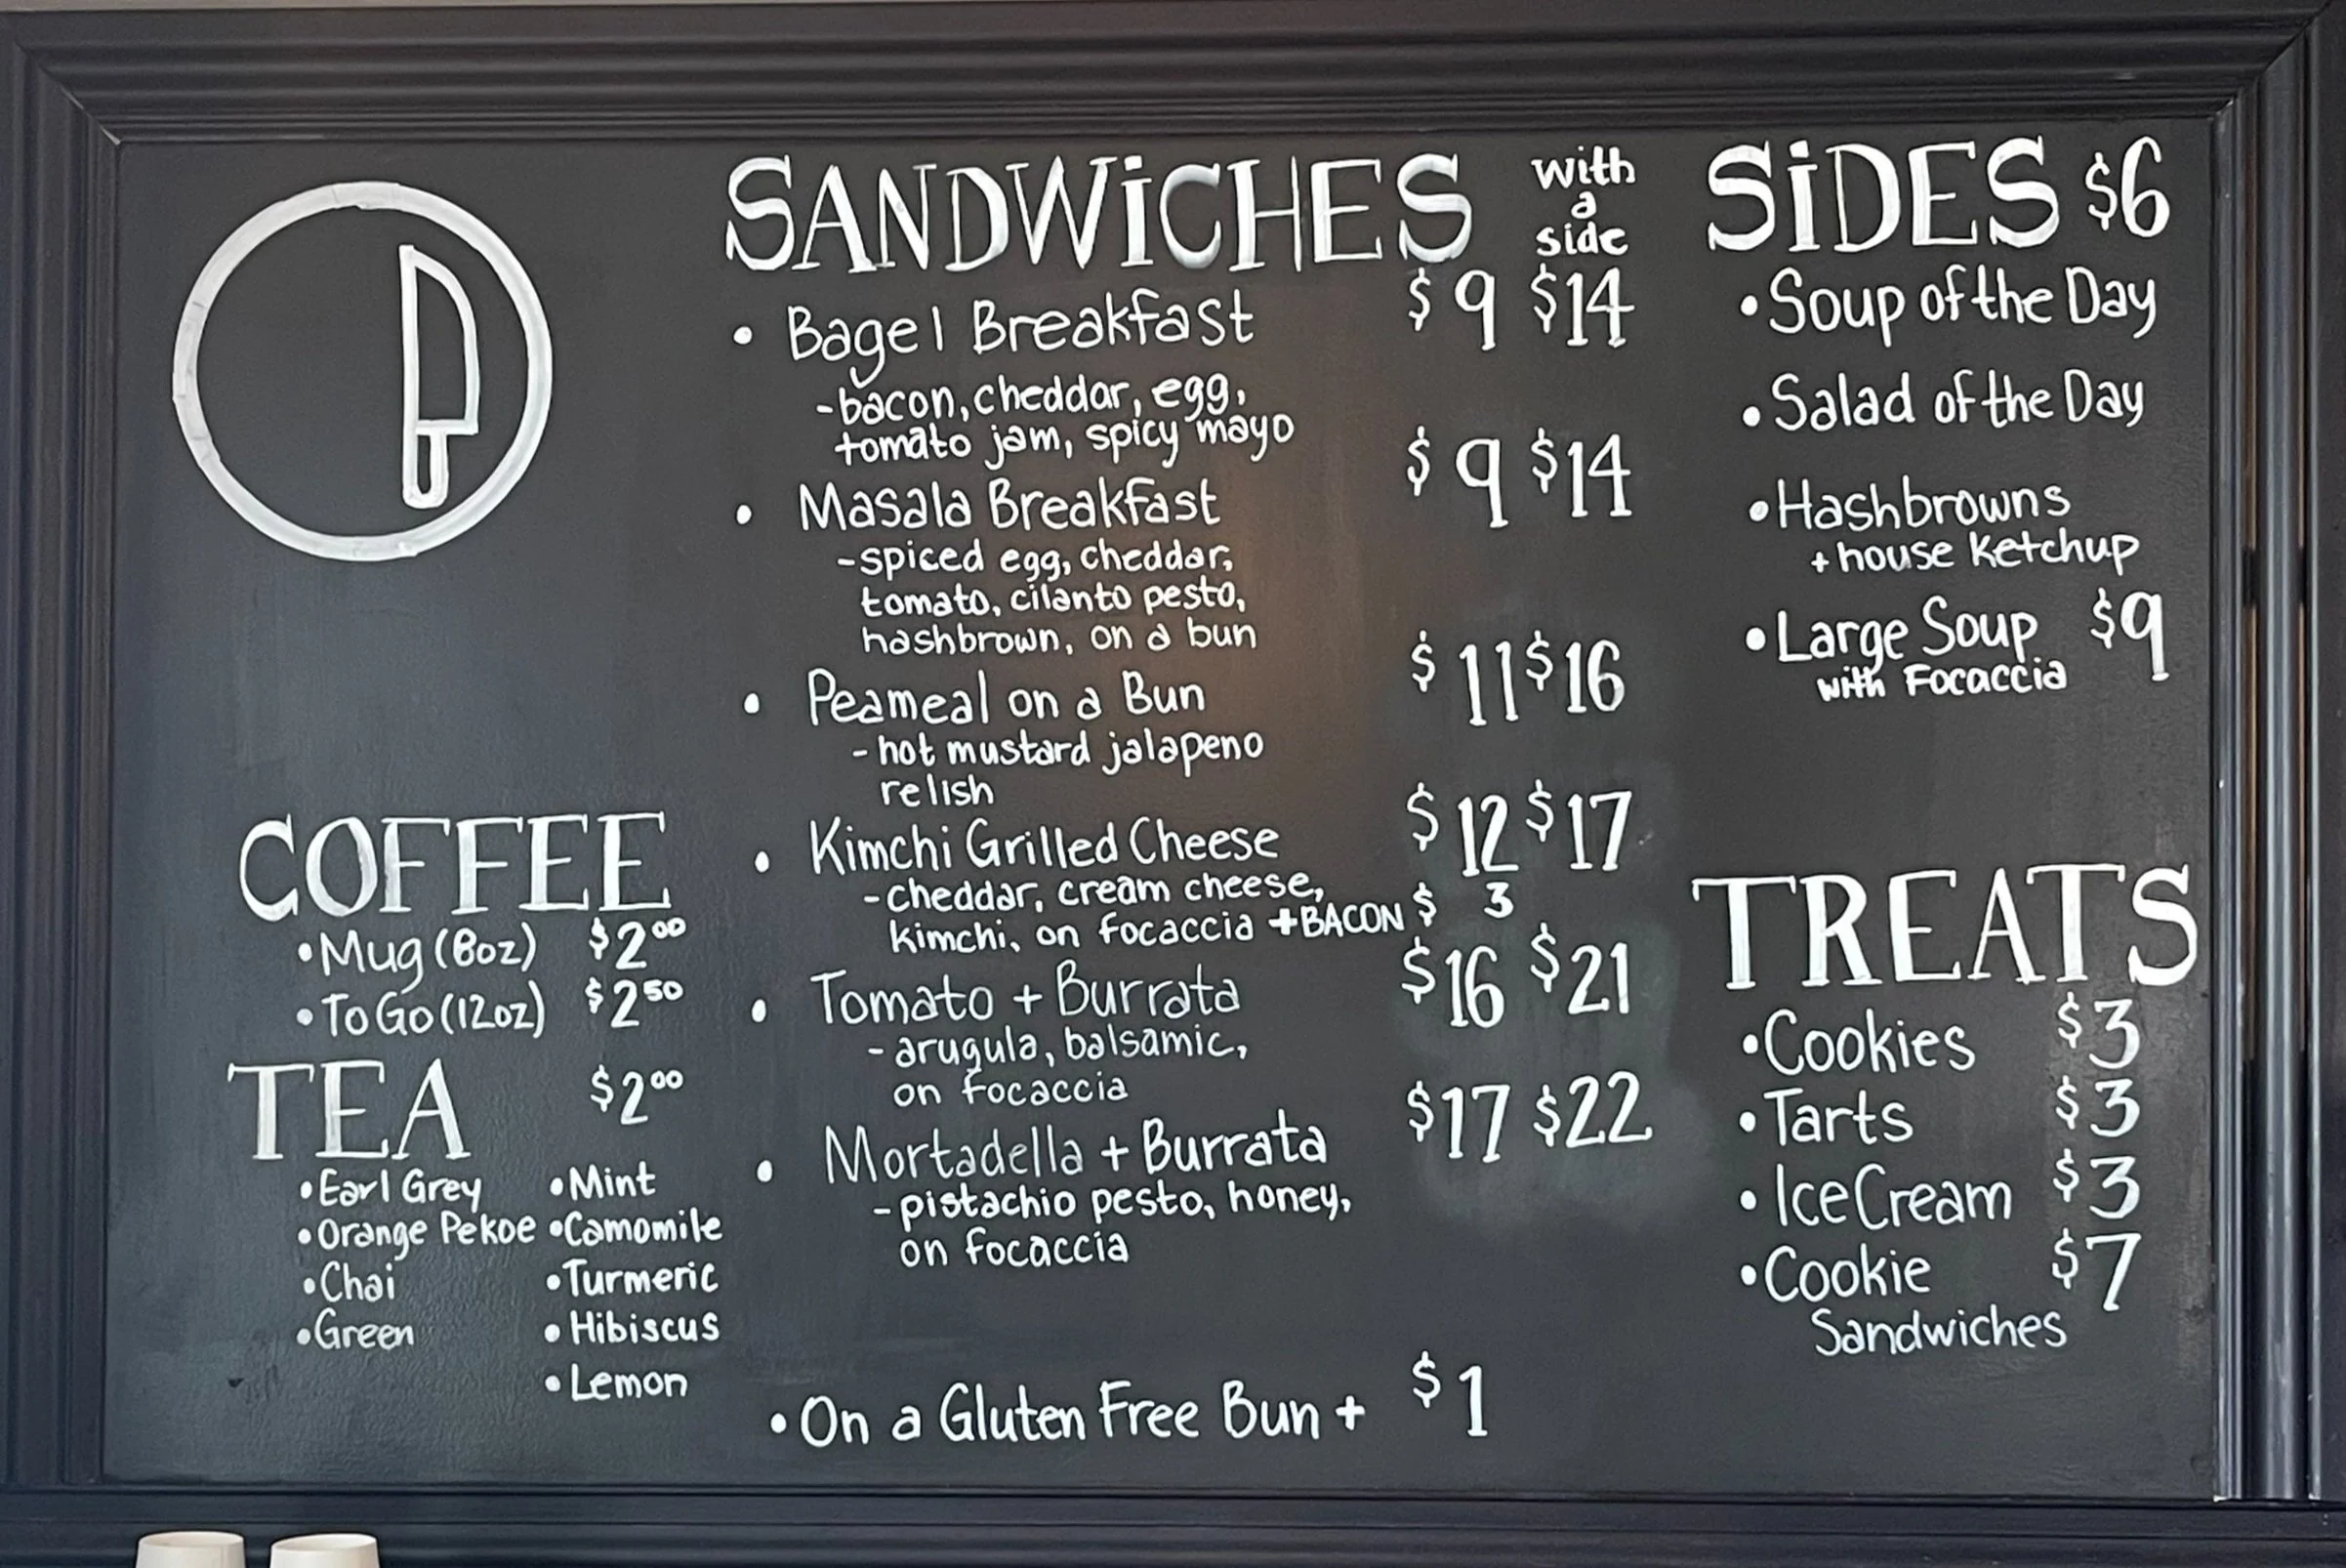 SANDWiCHES with a side
• Bagel Breakfast $9 $14
-bacon, cheddar, egg,
tomato jam, spicy mayo
• Masala Breakfast $9 $14
-spiced egg, cheddar,
tomato, cilanto pesto,
hashbrown, on a bun
• Peameal on a Bun $11 $16
- hot mustard jalapeno
relish
• Kimchi Grilled Cheese $12 $17
-cheddar, cream cheese,
kimchi, on focaccia +BACON $3
• Tomato + Burrata $16 $21
- arugula, balsamic,
on focaccia
• Mortadella + Burrata $17 $22
- pistachio pesto, honey,
on focaccia
• On a Gluten Free Bun + $1
COFFEE
• Mug (8oz) $2.00
• To Go (12oz) $2.50
TEA $2.00
• Earl Grey
• Orange Pekoe
• Chai
• Green
• Mint
• Camomile
• Turmeric
• Hibiscus
• Lemon
SiDES $6
• Soup of the Day
• Salad of the Day
• Hashbrowns
+ house ketchup
• Large Soup $9
with Focaccia
TREATS
• Cookies $3
• Tarts $3
• Ice Cream $3
• Cookie $7
Sandwiches